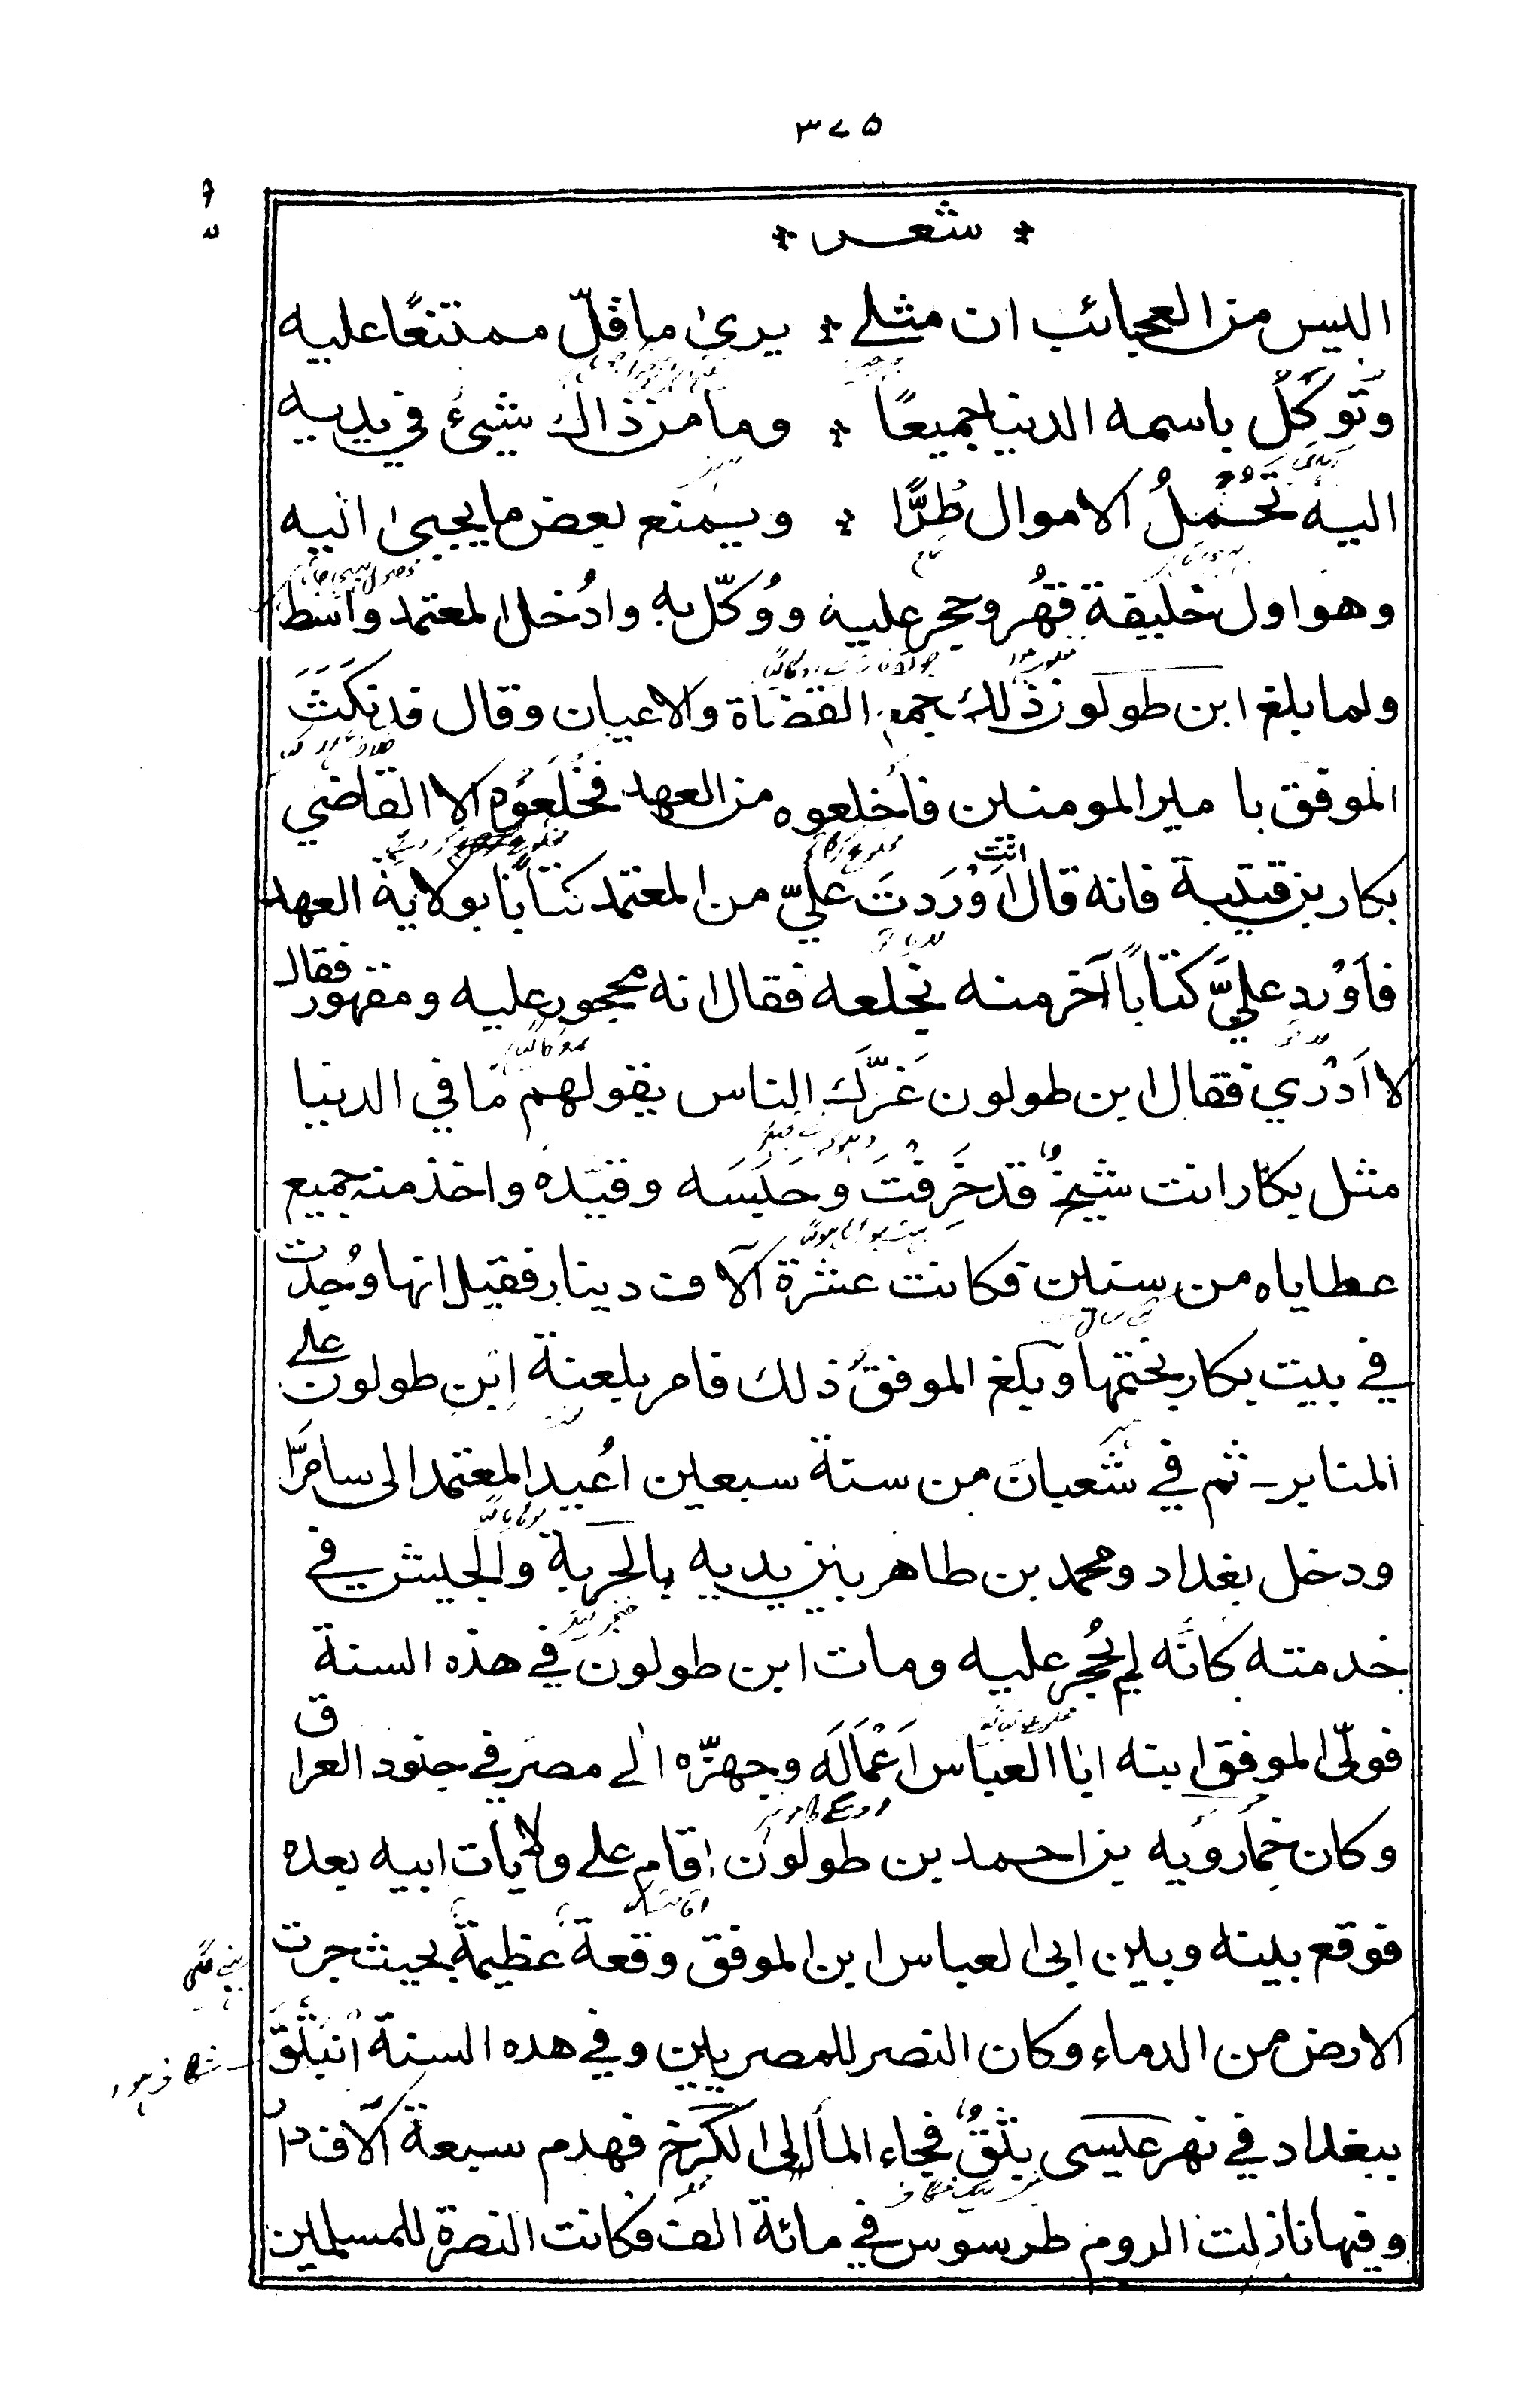 ٣٧٥
* شعر *
اليس من العجائب ان مثلے * يرىٰ ما قلّ ممتنعًا عليه
وتَوكَّلُ باسمه الدنيا جميعًا * وما من ذاك شيئ في يديه
اليه تُحْمَلُ الاموال طُرًّا * ويمنع بعض ما يجبىٰ اليه
وهو اول خليفة قُهر وحجر عليه ووُكّل به وادُخل المعتمد واسط
ولما بلغ ابن طولون ذلك جمع القضاة والاعيان وقال قد نَكَثَ
الموفق با مير المومنين فاخلعوه من العهد فخَلَعُوه الا القاضي
بكار بن قتيبة فانه قال انت اَوْرَدتَ عليّ من المعتمد كتابًا بولاية العهد
فاَوْرِد عليَّ كتابًا آخر منه بخلعه فقال انه محجور عليه ومقهور فقال
لا اَدْرِي فقال ابن طولون غَرَّكَ الناس بقولهم ما في الدنيا
مثل بكار انت شيخٌ قد خَرِفْتَ وحَبَسَه وقيّده واخذ منه جميع
عطاياه من سنين فكانت عشرة آلاف دينار فقيل انها وُجدت
في بيت بكار بختمها وبَلَغ الموفقَ ذلك فامر بلعنة اِبنِ طولون علے
المنابر ـ ثم في شَعبانَ من سنة سبعين اعُيد المعتمد الى سامرَّا
ودخل بغداد ومحمد بن طاهر بين يديه بالحَربة والجيش في
خدمته كانّه لم يُحجر عليه ومات ابن طولون في هذه السنة
فولّى الموفق ابنه ابا العباس اَعْمَالَه وجهّزه الٰے مصر في جنود العراق
وكان خمارويه بن احمد بن طولون اقام علے ولايات ابيه بعده
فوقع بينه وبين ابى العباس ابن الموفق وقعة عظيمة بحيث جرت
الارض من الدماء وكان النصر للمصريين وفي هذه السنة انبَثَقَ
ببغداد في نهر عيسى بثقٌ فجاء الماأ الى الكَرْخ فهدم سبعة آلاف دار
وفيها نازلت الروم طرسوس في مائة الف فكانت النصرة للمسلمين